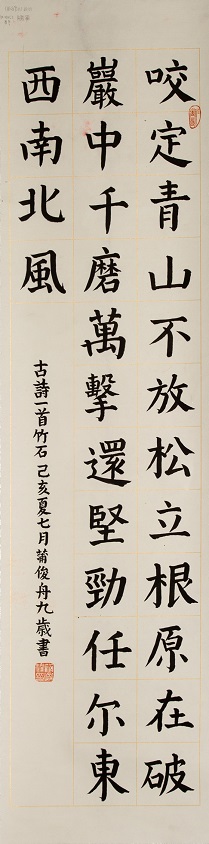 咬定青山不放松立根原在破
巖中千磨萬擊還堅勁任尔東
西南北風
古詩一首竹石己亥夏七月莆俊舟九歲書